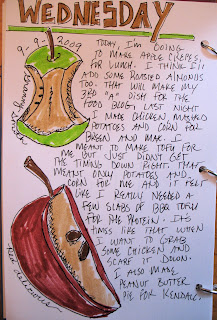 WEDNESDAY
9-9-2009
TODAY, I'M GOING
TO MAKE APPLE CREPES
FOR LUNCH. I THINK I'll
ADD SOME ROASTED ALMONDS
TOO. THAT WILL MAKE MY
3RD "A" DISH FOR THE
FOOD BLOG. LAST NIGHT
I MADE CHICKEN, MASHED
POTATOES AND CORN FOR
GREEN AND MAX. I
MEANT TO MAKE TOFU FOR
ME BUT JUST DIDN'T GET
THE TIMING DOWN RIGHT. THAT
MEANT ONLY POTATOES AND
CORN FOR ME AND IT FELT
LIKE I REALLY NEEDED A
FEW SLABS OF BBQ TOFU
FOR THE PROTEIN. IT'S
TIMES LIKE THAT WHEN
I WANT TO GRAB
SOME CHICKEN AND
SCARF IT DOWN.
I ALSO MADE
PEANUT BUTTER
PIE FOR KENDALL
Granny Smith
Red delicious